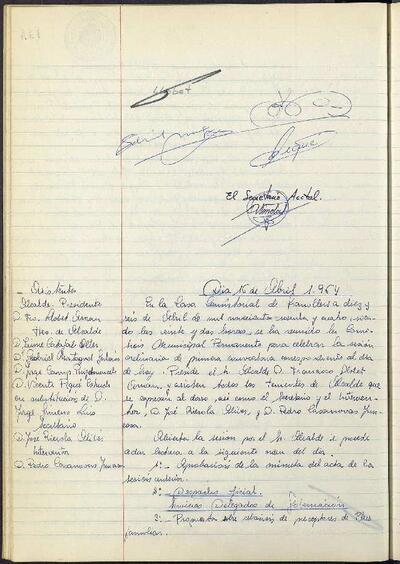 El Secretario Acctal.
Asistentes
Alcalde. Presidente
D. Fco. Llobet Arnan
Ttes. de Alcalde
D. Jaime
D. Gabriel
D. Jorge
D. Vicente
en substitución de D.
Jorge Jimeno
Secretario
D. José Rierola
Intervención
D. Pedro Casanovas
Día 16 de Abril 1.964
En la Casa Consistorial de Granollers a diez y
seis de Abril de mil novecientos sesenta y cuatro, siendo
las veinte y dos horas, se ha reunido la Comi-
sión Municipal Permanente para celebrar la sesión
ordinaria de primera convocatoria correspondiente al día
de hoy. Preside el Sr. Alcalde D. Francisco Llobet
Arnan, y asisten todos los Tenientes de Alcalde que
se expresan al dorso, así como el Secretario y el Interven-
tor, D. José Rierola y D. Pedro Casanovas
Abierta la sesión por el Sr. Alcalde se procede
a dar lectura a la siguiente orden del día.
1º- Aprobación de la minuta del acta de la
sesión anterior.
2º- Despacho oficial.
Servicios Delegados de Gobernación
3- Propuesta sobre relación de perceptores de Plus
familiar.